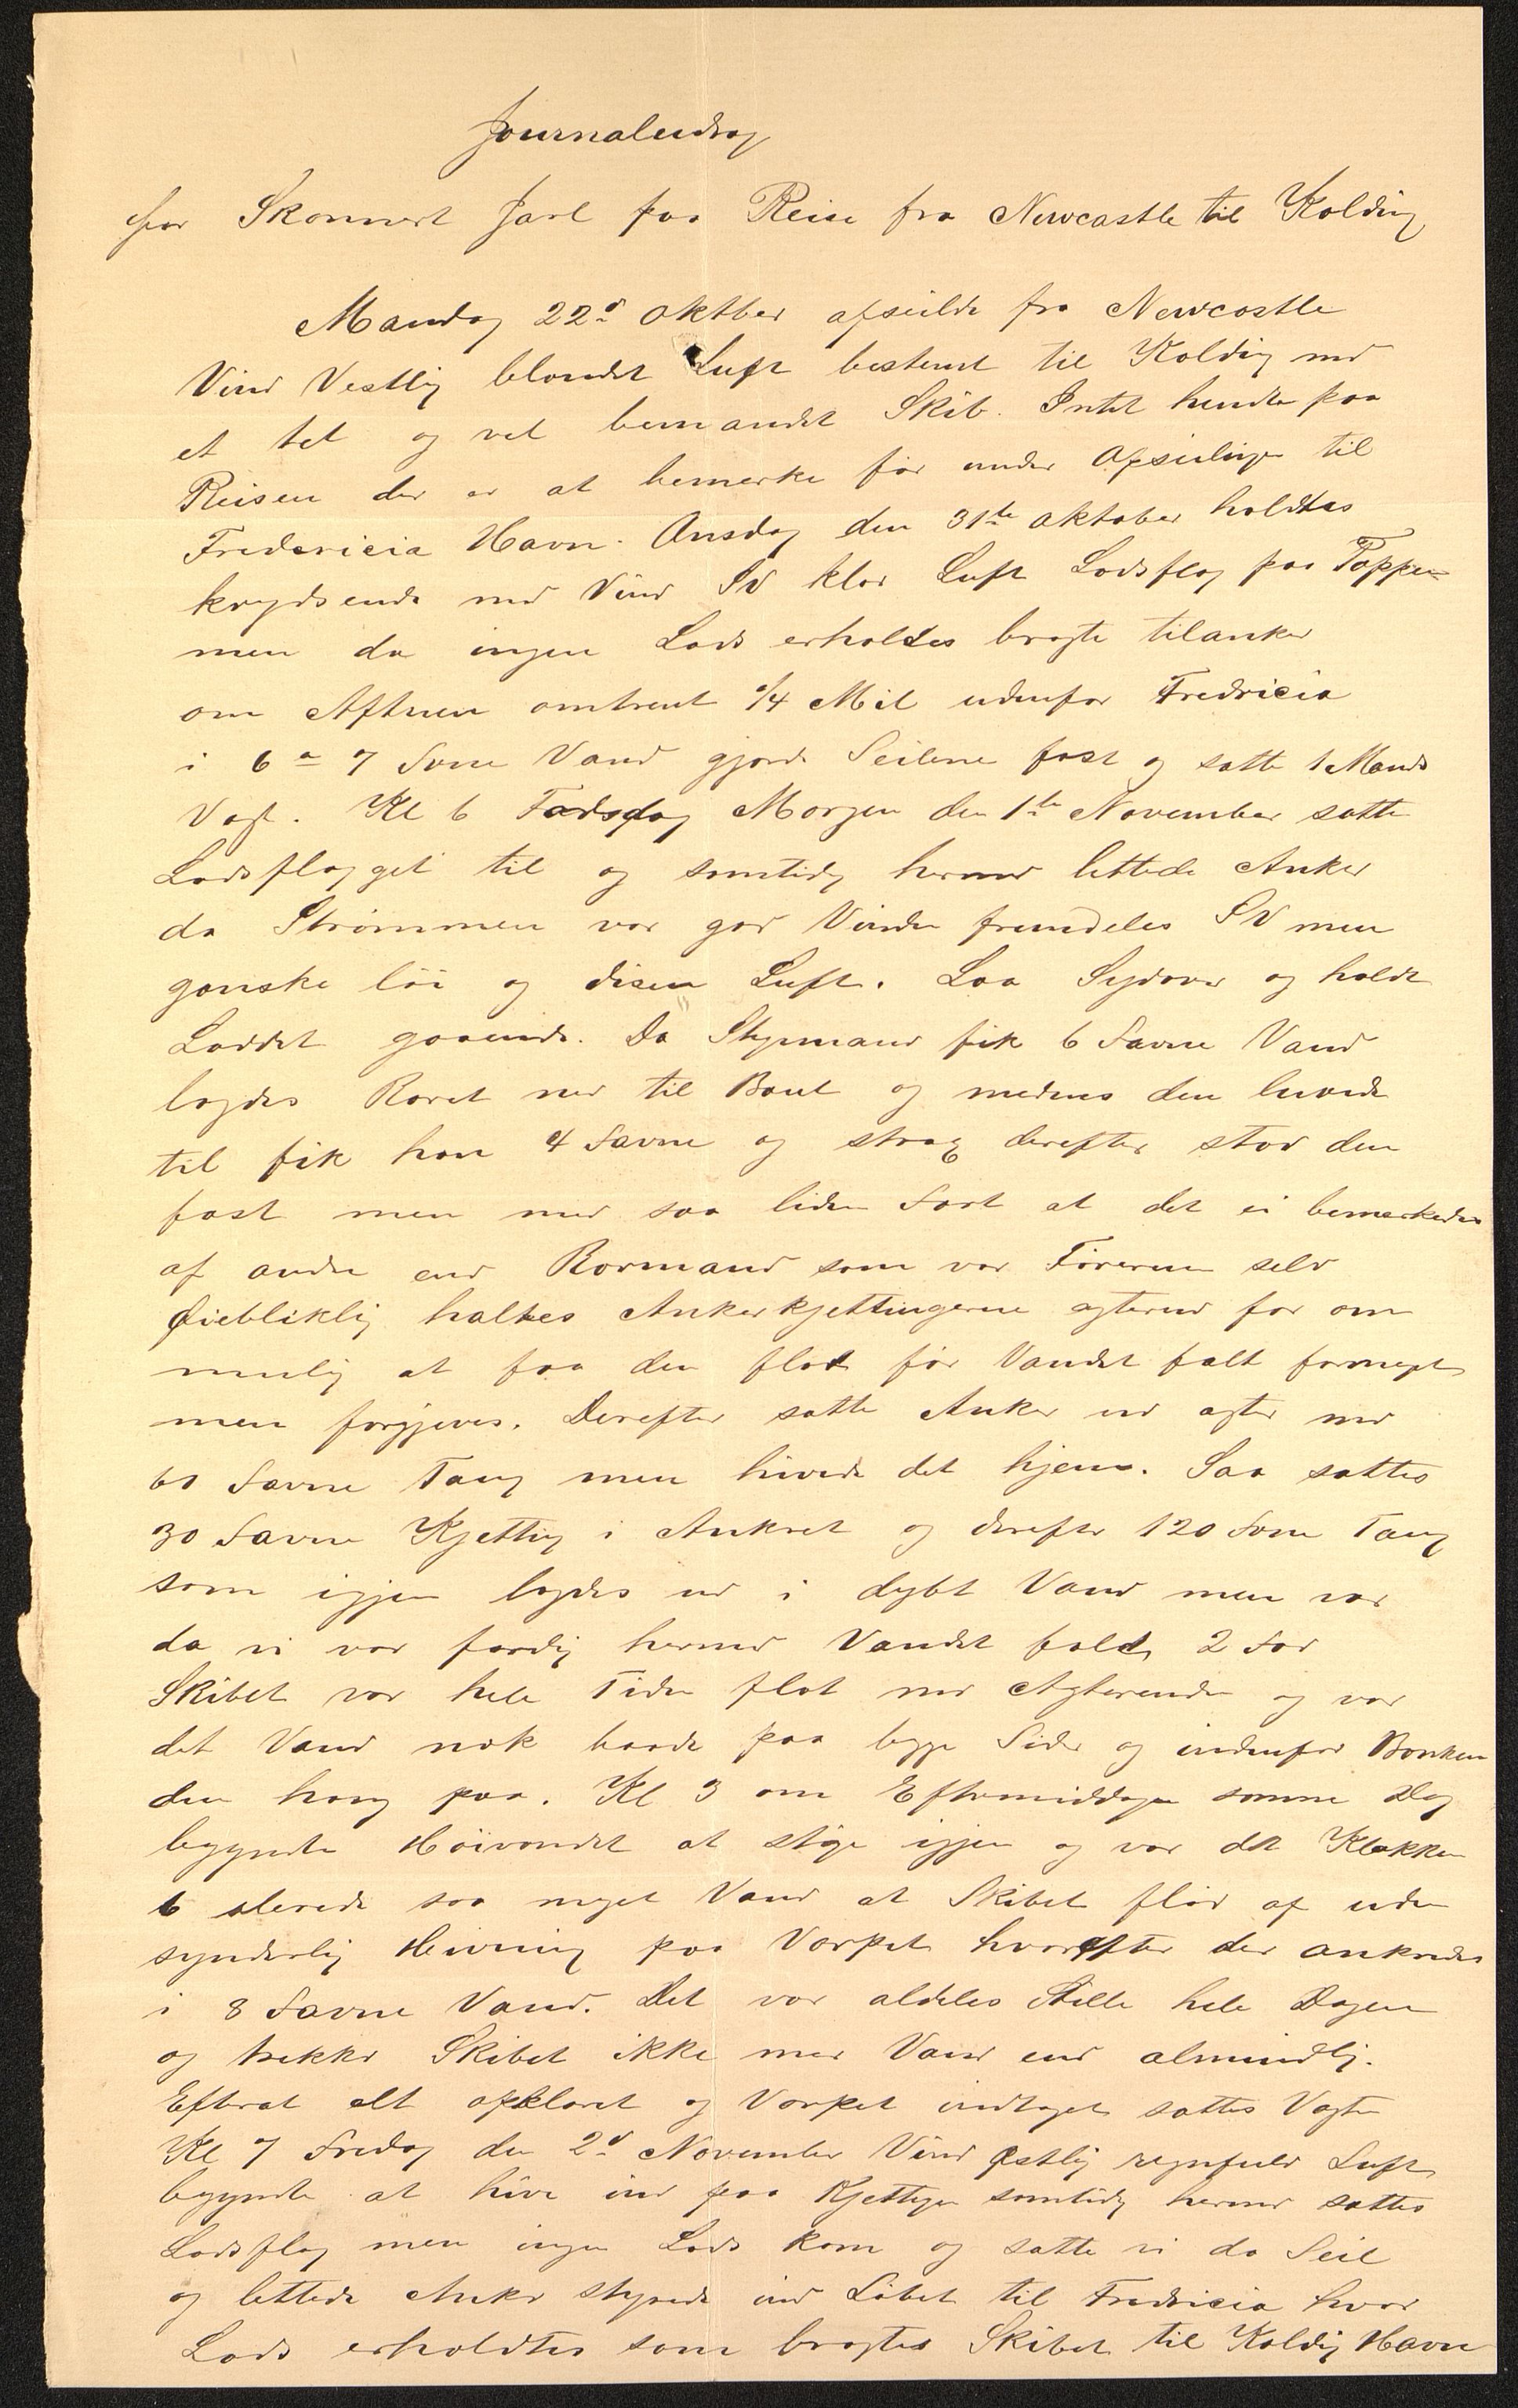 Journaludrag
for Skonnert Jarl paa Reise fra Newcastle til Kolding
Mandag 22d Oktber afseilde fra Newcastle
Vind Vestlig blandet Luft bestemt til Kolding med
et tet og vel bemandet Skib. Intet hendte paa
Reisen der er at bemerke før under Opseilingen til
Fredericia Havn. Onsdag den 31te Oktober holdtes
krydsende med Vind SV klar Luft Lodsflag paa Toppen
men da ingen Lods erholdes bragte tilankers
om Aftnen omtrent 1/4 Mil udenfor Fredricia
i 6 a 7 Favne Vand gjorde Seilene fast og satte 1 Mands
Vagt. Kl 6 Torsdag Morgen den 1te November satte
Lodsflagget til og samtidig hermed lettede Anker
da Strømmen var god Vinden fremdeles SV men
ganske løi og disen Luft. Laa Sydover og holdt
Loddet gaaende. Da Styrmand fik 6 Favne Vand
lagdes Roret ned til Bout og medens den luvede
til fik han 4 Favne og strax derefter stod den
fast men med saa liden Fart at det ei bemerkedes
af andre end Rormand som var Føreren selv
Øiebliklig haltes Ankerkjettingerne agterud for om
mulig at faa den flot før Vandet falt formeget
men forgjeves. Derefter satte Anker ud agter med
60 Favne Taug men hivede det hjem. Saa sattes
30 Favne Kjetting i Ankret og derefter 120 Favne Taug
som igjen lagdes ud i dybt Vand men var
da vi var færdig hermed Vandet faldt 2 Fod
Skibet var hele Tiden flot med Agterenden og var
det Vand nok baade paa begge Sider og indenfor Banken
den hang paa. Kl 3 om Eftermiddagen samme Dag
begyndte Høivandet at stige igjen og var det Klokken
6 allerede saa meget Vand at Skibet flød af uden
synderlig Hivning paa Varpet hvorefter der ankredes
i 8 Favne Vand. Det var aldeles Stille hele Dagen
og trekker Skibet ikke mer Vand end almindlig.
Efterat alt opklaret og Varpet indtaget sattes Vagten
Kl 7 Fredag den 2d November Vind Østlig regnfuld Luft
begyndte at hive ind paa Kjettingen samtidig hermed sattes
Lodsflag men ingen Lods kom og satte vi da Seil
og lettede Anker styrede ind Løbet til Fredricia hvor
Lods erholdtes som bragtes Skibet til Kolding Havn